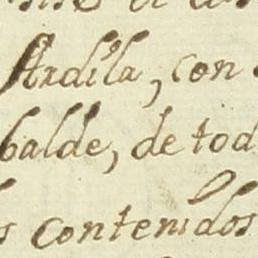 Ardila, con
balde, de tod
s contenidos